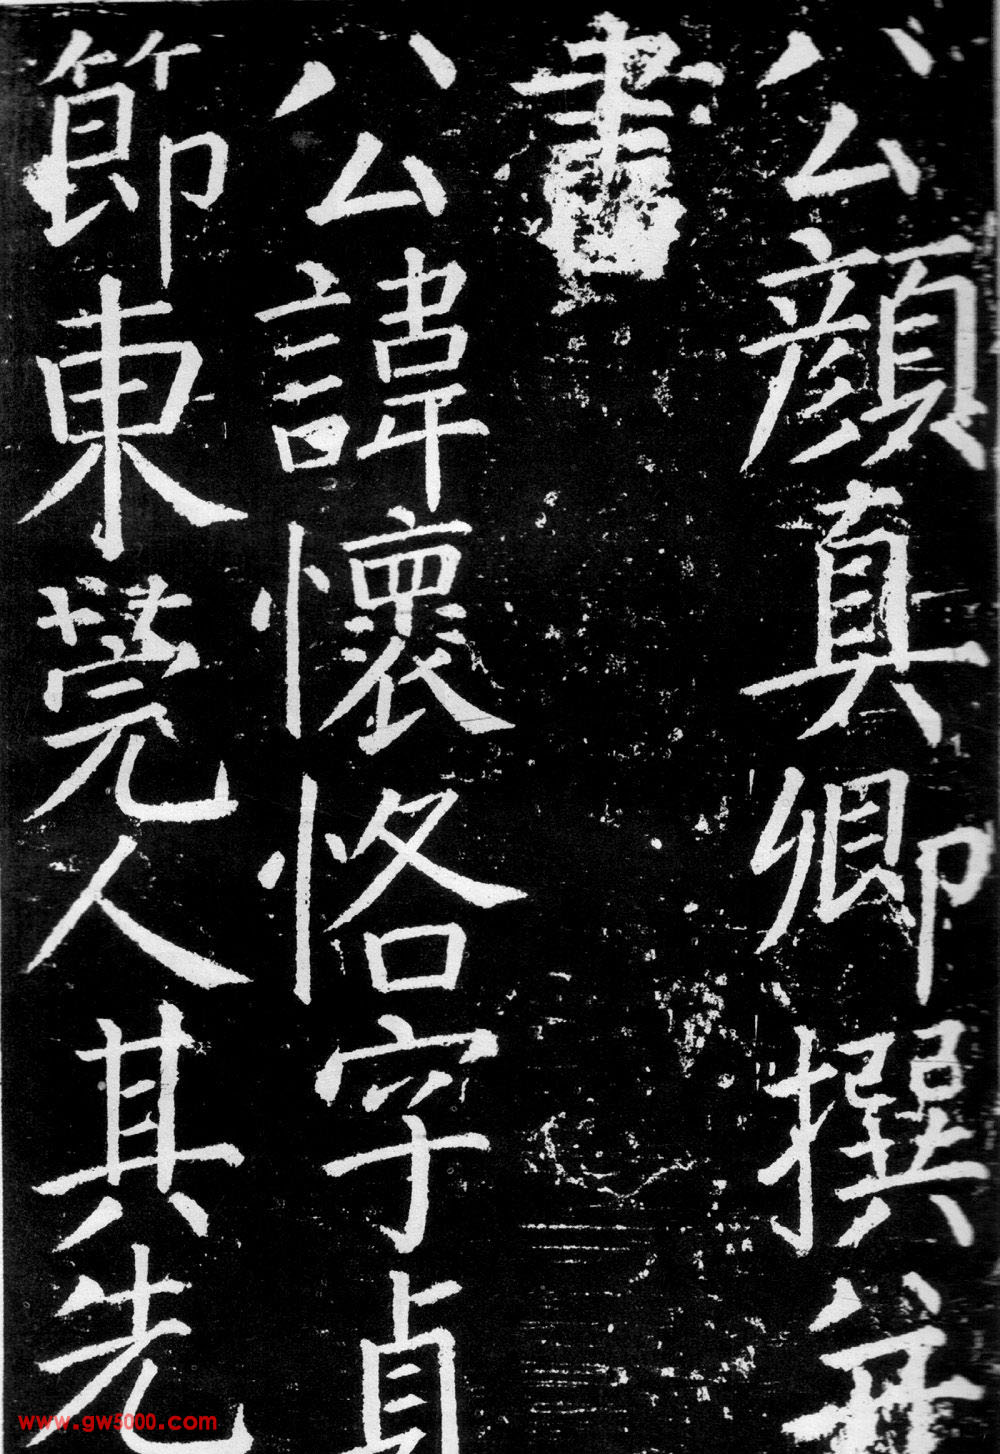 公顏真卿撰并
書
公諱懷恪字貞
節東莞人其先
www.gw5000.com